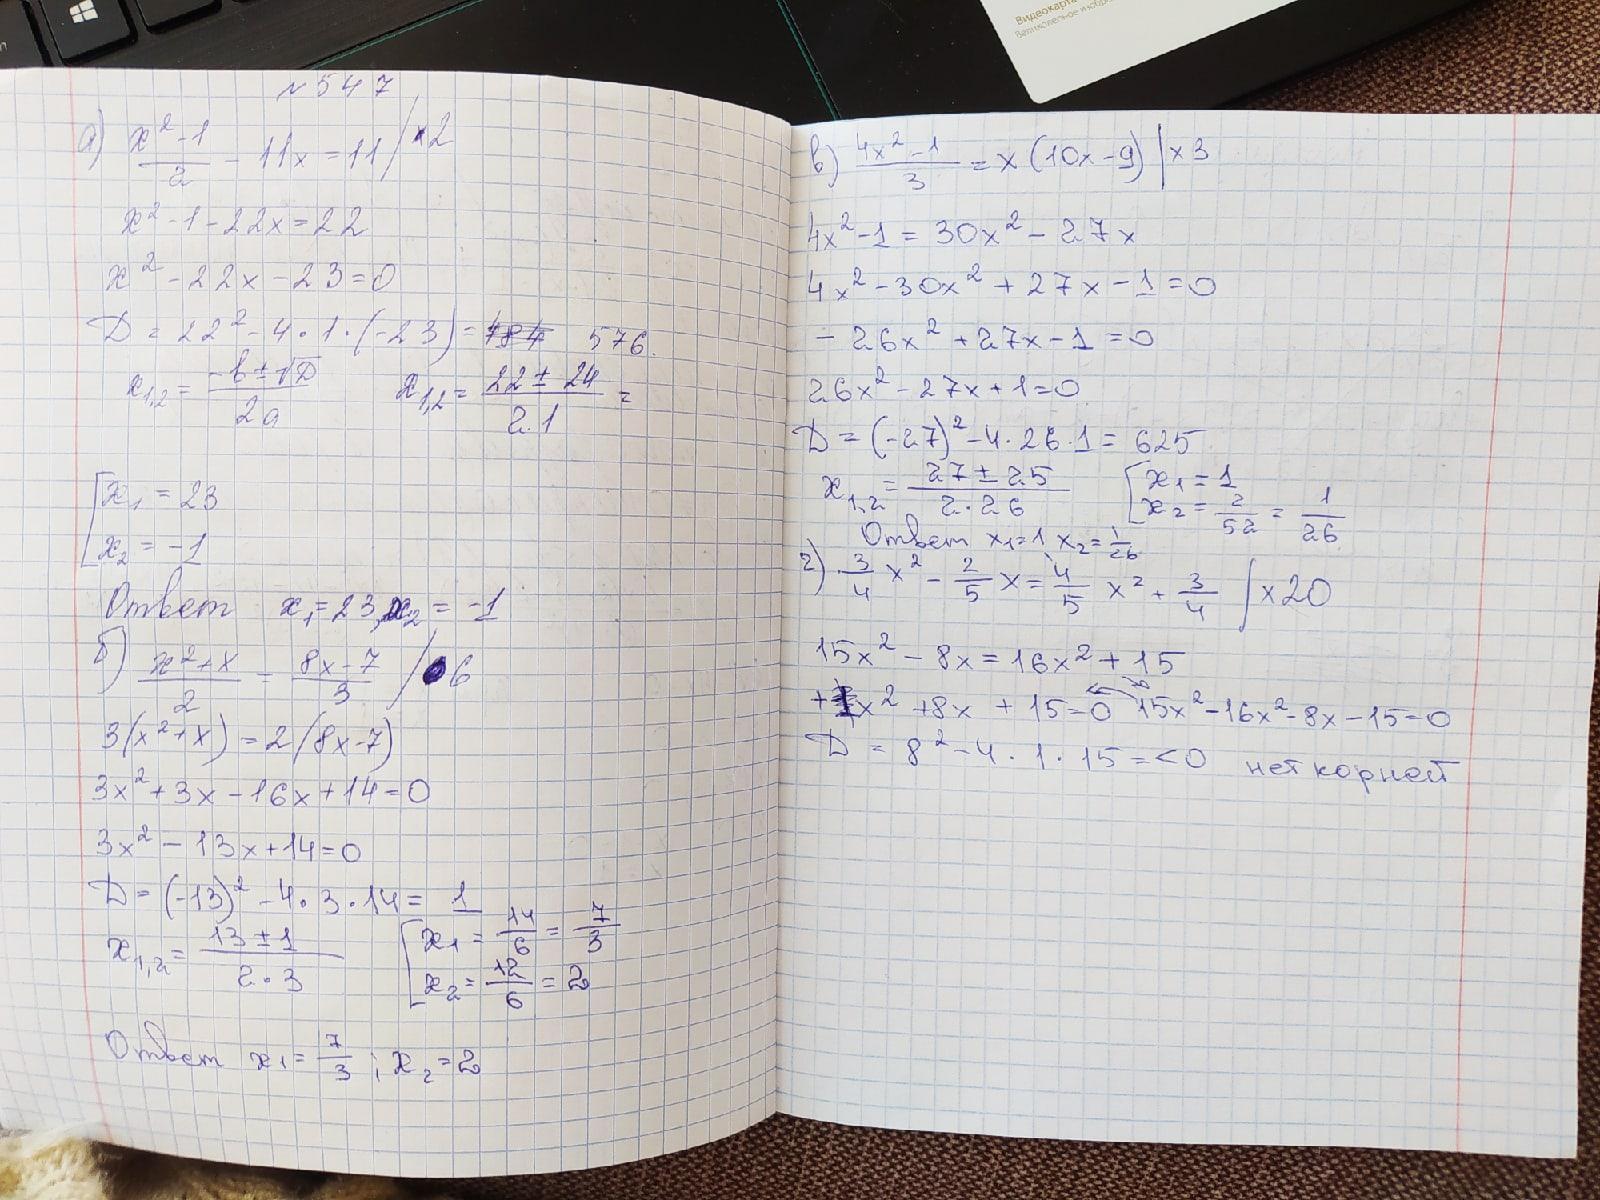 Видеокарта
№547
а) (x²-1)/2 - 11x = 11 / ×2
x² - 1 - 22x = 22
x² - 22x - 23 = 0
D = 22² - 4·1·(-23) = 576
x₁,₂ = (-b±√D)/2a x₁,₂ = (22 ± 24)/2·1 =
[x₁ = 23
x₂ = -1
Ответ x₁ = 23, x₂ = -1
б) (x²+x)/2 = (8x-7)/3 / 6
3(x²+x) = 2(8x-7)
3x² + 3x - 16x + 14 = 0
3x² - 13x + 14 = 0
D = (-13)² - 4·3·14 = 1
x₁,₂ = (13 ± 1)/2·3 [x₁ = 14/6 = 7/3
x₂ = 12/6 = 2
Ответ x₁ = 7/3 ; x₂ = 2
в) (4x²-1)/3 = x(10x-9) | ×3
4x² - 1 = 30x² - 27x
4x² - 30x² + 27x - 1 = 0
- 26x² + 27x - 1 = 0
26x² - 27x + 1 = 0
D = (-27)² - 4·26·1 = 625
x₁,₂ = (27 ± 25)/2·26 [x₁ = 1
x₂ = 2/52 = 1/26
Ответ x₁ = 1 x₂ = 1/26
г) 3/4 x² - 2/5 x = 4/5 x² + 3/4 | ×20
15x² - 8x = 16x² + 15
+1x² + 8x + 15 = 0 15x² - 16x² - 8x - 15 = 0
D = 8² - 4·1·15 = <0 нет корней